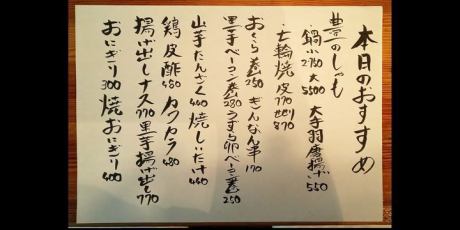 本日のおすすめ
豊のしゃも
鍋小2750大5500 大手羽唐揚げ550
七輪焼 皮770 せせり870
おくら巻250 ぎんなん串170
里芋ベーコン巻280 うずら卵ベーコン巻250
山芋たんざく440 焼しいたけ440
鶏皮酢480 カワカラ480
揚げ出しナス770 里芋揚げ出し770
おにぎり300 焼おにぎり400